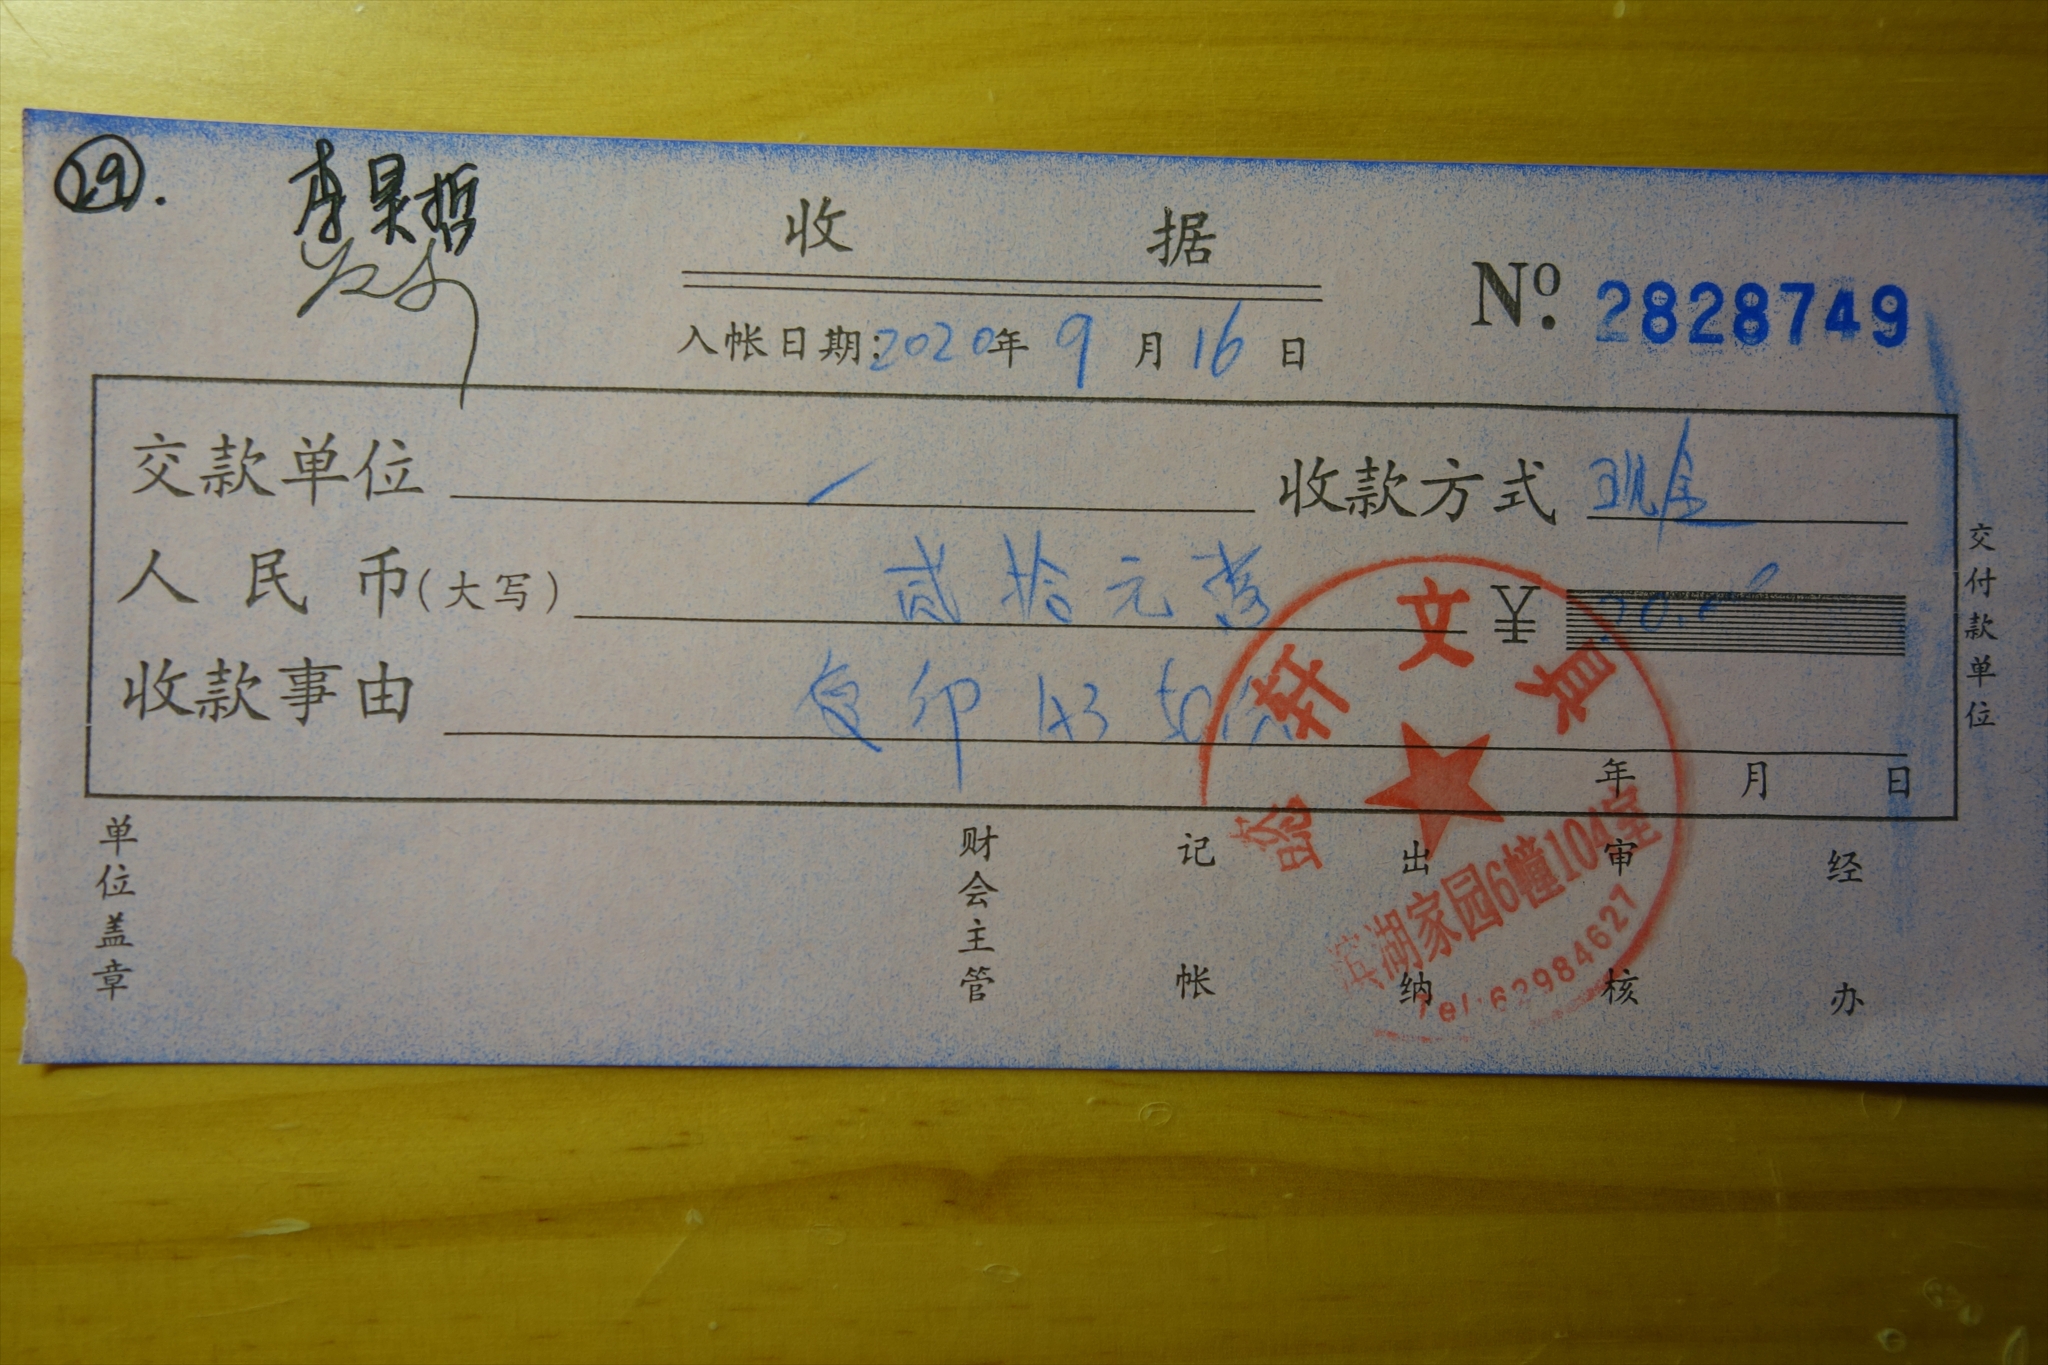 29.
李昊哲
收 据
No. 2828749
入帐日期:2020年 9 月 16 日
交款单位 收款方式 现金
人 民 币(大写) 贰拾元整 ¥ 20.00
收款事由 复印 A3 50份
年 月 日
交付款单位
单位盖章 财会主管 记帐 出纳 审核 经办
轩文具
滨湖家园6幢104室
Tel:62984627